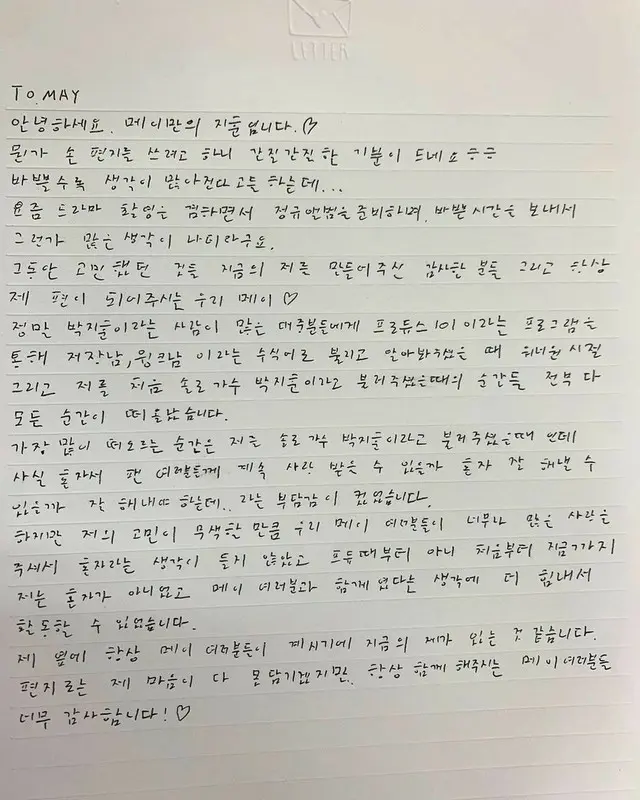 LETTER
TO. MAY
안녕하세요. 메이만의 지훈입니다.♡
뭔가 손 편지를 쓰려고 하니 간질간질한 기분이 드네요ㅎㅎ
바쁠수록 생각이 많아진다고들 하는데...
요즘 드라마 촬영을 겸하면서 정규앨범을 준비하며, 바쁜시간을 보내서
그런가 많은 생각이 나더라구요.
그동안 고민했던 것들 지금의 저를 만들어주신 감사한 분들 그리고 항상
제 편이 되어주시는 우리 메이♡
정말 박지훈이라는 사람이 많은 대중분들에게 프로듀스101이라는 프로그램을
통해 저장남, 윙크남 이라는 수식어로 불리고 알아봐주셨을 때 워너원 시절
그리고 저를 처음 솔로가수 박지훈이라고 불러주셨을때의 순간들 전부 다
모든 순간이 떠올랐습니다.
가장 많이 떠오르는 순간은 저를 솔로가수 박지훈이라고 불러주셨을때 인데
사실 혼자서 팬 여러분들께 계속 사랑 받을 수 있을까 혼자 잘 해낼 수
있을까 잘 해내야 하는데.. 라는 부담감이 컸었습니다.
하지만 저의 고민이 무색할 만큼 우리 메이 여러분들이 너무나 많은 사랑을
주셔서 혼자라는 생각이 들지 않았고 프듀때부터 아니 처음부터 지금까지
저는 혼자가 아니었고 메이 여러분과 함께였다는 생각에 더 힘내서
활동할 수 있었습니다.
제 옆에 항상 메이 여러분들이 계시기에 지금의 제가 있는 것 같습니다.
편지로는 제 마음이 다 못담기겠지만, 항상 함께 해주시는 메이여러분들
너무 감사합니다!♡